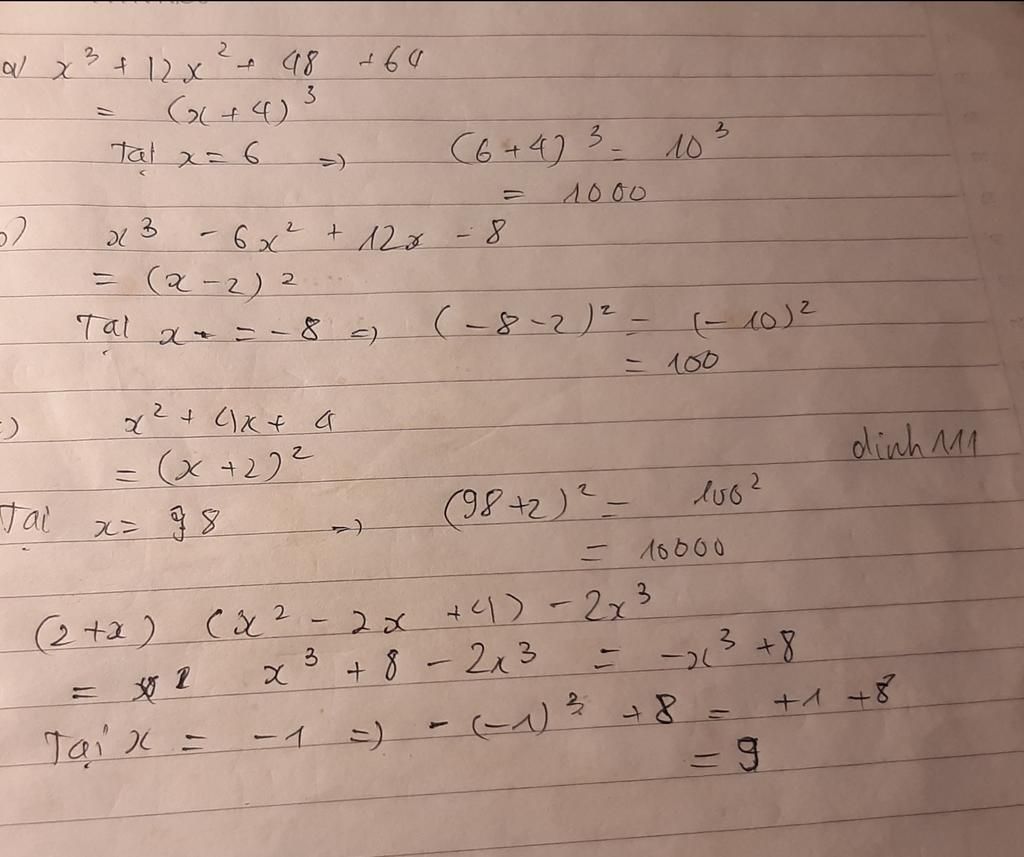 a) x³ + 12x² + 48 + 64
= (x + 4)³
Tại x = 6 => (6 + 4)³ = 10³
= 1000
b) x³ - 6x² + 12x - 8
= (x - 2)²
Tại x = -8 => (-8 - 2)² = (-10)²
= 100
c) x² + 4x + 4
= (x + 2)²
dinh 111
Tại x = 98 => (98 + 2)² = 100²
= 10000
(2 + x) (x² - 2x + 4) - 2x³
= x³ + 8 - 2x³ = -x³ + 8
Tại x = -1 => -(-1)³ + 8 = +1 + 8
= 9